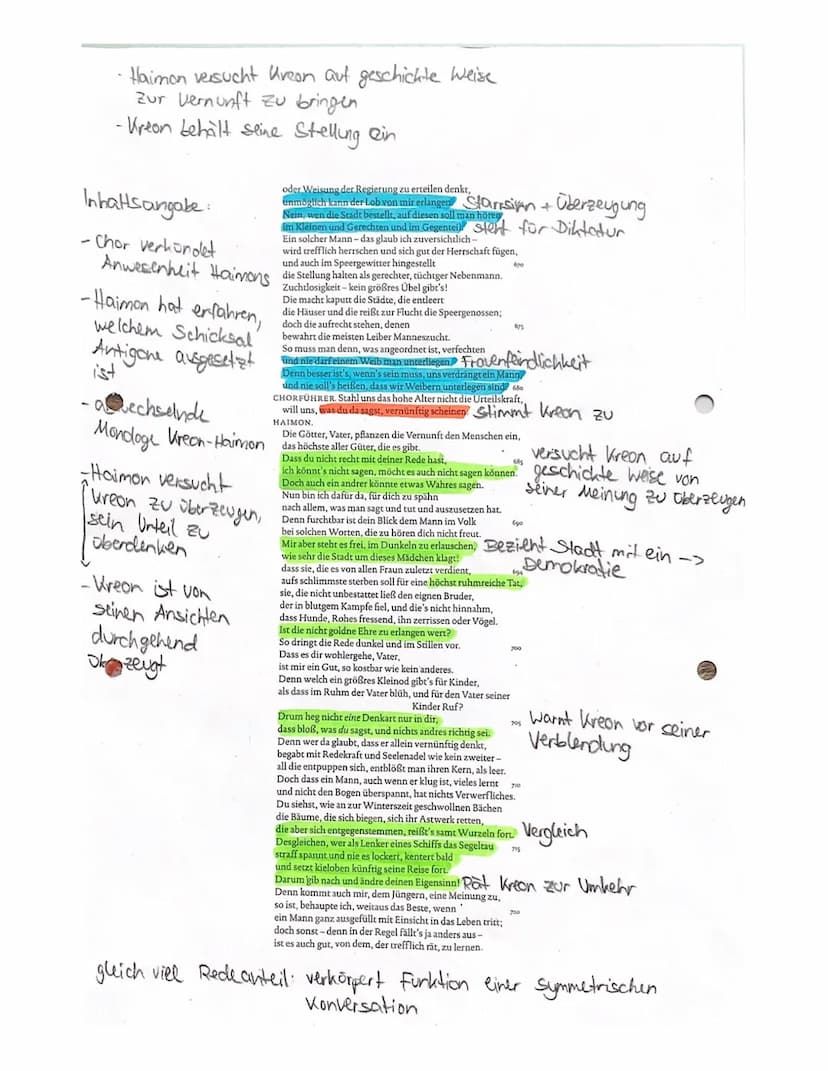 · Haimon versucht Kreon auf geschickte Weise
zur Vernunft zu bringen
- Kreon behält seine Stellung ein
Inhaltsangabe:
- Chor verkündet
Anwesenheit Haimons
- Haimon hat erfahren,
welchem Schicksal
Antigone ausgesetzt
ist
- abwechselnde
Monologe Kreon-Haimon
- Haimon versucht
Kreon zu überzeugen,
sein Urteil zu
überdenken
- Kreon ist von
seinen Ansichten
durchgehend
überzeugt
oder Weisung der Regierung zu erteilen denkt,
unmöglich kann der Lob von mir erlangen. Starrsinn + Überzeugung
Nein, wen die Stadt bestellt, auf diesen soll man hören
im Kleinen und Gerechten und im Gegenteil! steht für Diktatur
Ein solcher Mann – das glaub ich zuversichtlich –
wird trefflich herrschen und sich gut der Herrschaft fügen,
und auch im Speergewitter hingestellt 670
die Stellung halten als gerechter, tüchtger Nebenmann.
Zuchtlosigkeit – kein größres Übel gibt's!
Die macht kaputt die Städte, die entleert
die Häuser und die reißt zur Flucht die Speergenossen;
doch die aufrecht stehen, denen 675
bewahrt die meisten Leiber Manneszucht.
So muss man denn, was angeordnet ist, verfechten
und nie darf einem Weib man unterliegen! Frauenfeindlichkeit
Denn besser ist's, wenn's sein muss, uns verdrängt ein Mann,
und nie soll's heißen, dass wir Weibern unterlegen sind! 680
CHORFÜHRER. Stahl uns das hohe Alter nicht die Urteilskraft,
will uns, was du da sagst, vernünftig scheinen. Stimmt Kreon zu
HAIMON.
Die Götter, Vater, pflanzen die Vernunft den Menschen ein,
das höchste aller Güter, die es gibt.
Dass du nicht recht mit deiner Rede hast, 685
ich könnt's nicht sagen, möcht es auch nicht sagen können.
Doch auch ein andrer könnte etwas Wahres sagen.
versucht Kreon auf
geschickte Weise von
seiner Meinung zu überzeugen
Nun bin ich dafür da, für dich zu spähn
nach allem, was man sagt und tut und auszusetzen hat.
Denn furchtbar ist dein Blick dem Mann im Volk 690
bei solchen Worten, die zu hören dich nicht freut.
Mir aber steht es frei, im Dunkeln zu erlauschen,
wie sehr die Stadt um dieses Mädchen klagt:
Bezieht Stadt mit ein -->
Demokratie
dass sie, die es von allen Fraun zuletzt verdient,
aufs schlimmste sterben soll für eine höchst ruhmreiche Tat, 695
sie, die nicht unbestattet ließ den eignen Bruder,
der in blutgem Kampfe fiel, und die's nicht hinnahm,
dass Hunde, Rohes fressend, ihn zerrissen oder Vögel.
Ist die nicht goldne Ehre zu erlangen wert?
So dringt die Rede dunkel und im Stillen vor. 700
Dass es dir wohlergehe, Vater,
ist mir ein Gut, so kostbar wie kein anderes.
Denn welch ein größres Kleinod gibt's für Kinder,
als dass im Ruhm der Vater blüh, und für den Vater seiner
Kinder Ruf?
Drum heg nicht eine Denkart nur in dir, 705
dass bloß, was du sagst, und nichts andres richtig sei.
warnt Kreon vor seiner
Verblendung
Denn wer da glaubt, dass er allein vernünftig denkt,
begabt mit Redekraft und Seelenadel wie kein zweiter –
all die entpuppen sich, entblößt man ihren Kern, als leer.
Doch dass ein Mann, auch wenn er klug ist, vieles lernt 710
und nicht den Bogen überspannt, hat nichts Verwerfliches.
Du siehst, wie an zur Winterszeit geschwollnen Bächen
die Bäume, die sich biegen, sich ihr Astwerk retten,
die aber sich entgegenstemmen, reißt's samt Wurzeln fort. Vergleich
Desgleichen, wer als Lenker eines Schiffs das Segeltau 715
straff spannt und nie es lockert, kentert bald
und setzt kieloben künftig seine Reise fort.
Darum gib nach und ändre deinen Eigensinn! Rät Kreon zur Umkehr
Denn kommt auch mir, dem Jüngern, eine Meinung zu,
so ist, behaupte ich, weitaus das Beste, wenn 720
ein Mann ganz ausgefüllt mit Einsicht in das Leben tritt;
doch sonst – denn in der Regel fällt's ja anders aus –
ist es auch gut, von dem, der trefflich rät, zu lernen.
gleich viel Redeanteil: verkörpert Funktion einer symmetrischen
Konversation